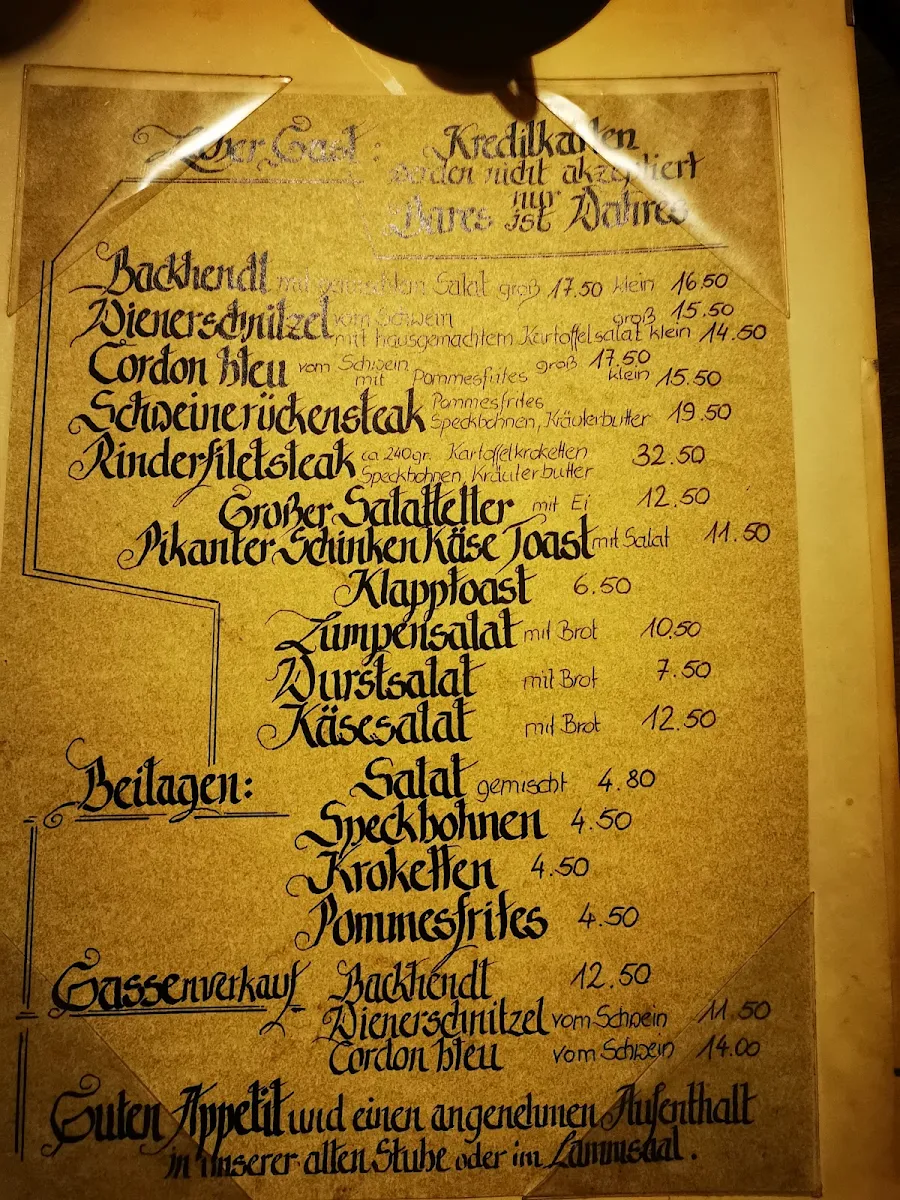 Lieber Gast:
Kreditkarten
werden nicht akzeptiert
nur
Bares ist Wahres
Backhendl mit gemischtem Salat groß 17.50 klein 16.50
Wienerschnitzel vom Schwein groß 15.50
mit hausgemachtem Kartoffelsalat klein 14.50
Cordon bleu vom Schwein groß 17.50
mit Pommesfrites klein 15.50
Schweinerückensteak Pommesfrites
Speckbohnen, Kräuterbutter 19.50
Rinderfiletsteak ca 240gr. Kartoffelkroketten 32.50
Speckbohnen, Kräuterbutter
Großer Salatteller mit Ei 12.50
Pikanter Schinken Käse Toast mit Salat 11.50
Klapptoast 6.50
Lumpensalat mit Brot 10.50
Wurstsalat mit Brot 7.50
Käsesalat mit Brot 12.50
Beilagen: Salat gemischt 4.80
Speckbohnen 4.50
Kroketten 4.50
Pommesfrites 4.50
Gassenverkauf Backhendl 12.50
Wienerschnitzel vom Schwein 11.50
Cordon bleu vom Schwein 14.00
Guten Appetit und einen angenehmen Aufenthalt
in unserer alten Stube oder im Lammsaal.